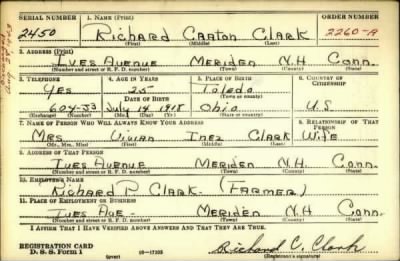 SERIAL NUMBER 1. NAME (Print) ORDER NUMBER
2450 Richard Carton Clark 2260-A
(First) (Middle) (Last)
2. ADDRESS (Print)
Ives Avenue Meriden N.H Conn.
(Number and street or R. F. D. number) (Town) (County) (State)
3. TELEPHONE 4. AGE IN YEARS 5. PLACE OF BIRTH 6. COUNTRY OF CITIZENSHIP
Yes 25 Toledo
DATE OF BIRTH (Town or county)
604-J3 July 14 1915 Ohio U.S
(Exchange) (Number) (Mo.) (Day) (Yr.) (State or country)
7. NAME OF PERSON WHO WILL ALWAYS KNOW YOUR ADDRESS 8. RELATIONSHIP OF THAT PERSON
Mrs Vivian Inez Clark Wife
(Mr., Mrs., Miss) (First) (Middle) (Last)
9. ADDRESS OF THAT PERSON
Ives Avenue Meriden N.H. Conn.
(Number and street or R. F. D. number) (Town) (County) (State)
10. EMPLOYER'S NAME
Richard P. Clark- (Farmer)
11. PLACE OF EMPLOYMENT OR BUSINESS
Ives Ave- Meriden N.H Conn.
(Number and street or R. F. D. number) (Town) (County) (State)
I AFFIRM THAT I HAVE VERIFIED ABOVE ANSWERS AND THAT THEY ARE TRUE.
REGISTRATION CARD
D. S. S. Form 1 (over) Richard C. Clark
(Registrant's signature)